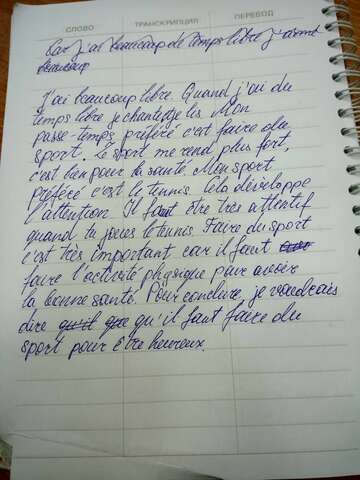 СЛОВО ТРАНСКРИПЦИЯ ПЕРЕВОД
Car j'ai beaucoup de temps libre j'aime
beaucoup
J'ai beaucoup libre. Quand j'ai du
temps libre je chante, je lis. Mon
passe-temps préféré c'est faire du
sport. Le sport me rend plus fort,
c'est bien pour la santé. Mon sport
préféré c'est le tennis. Cela développe
l'attention. Il faut être très attentif
quand tu joues le tunis. Faire du sport
c'est très important car il faut
faire l'activité physique pour avoir
la bonne santé. Pour conclure, je voudrais
dire qu'il que qu'il faut faire du
sport pour être heureux.